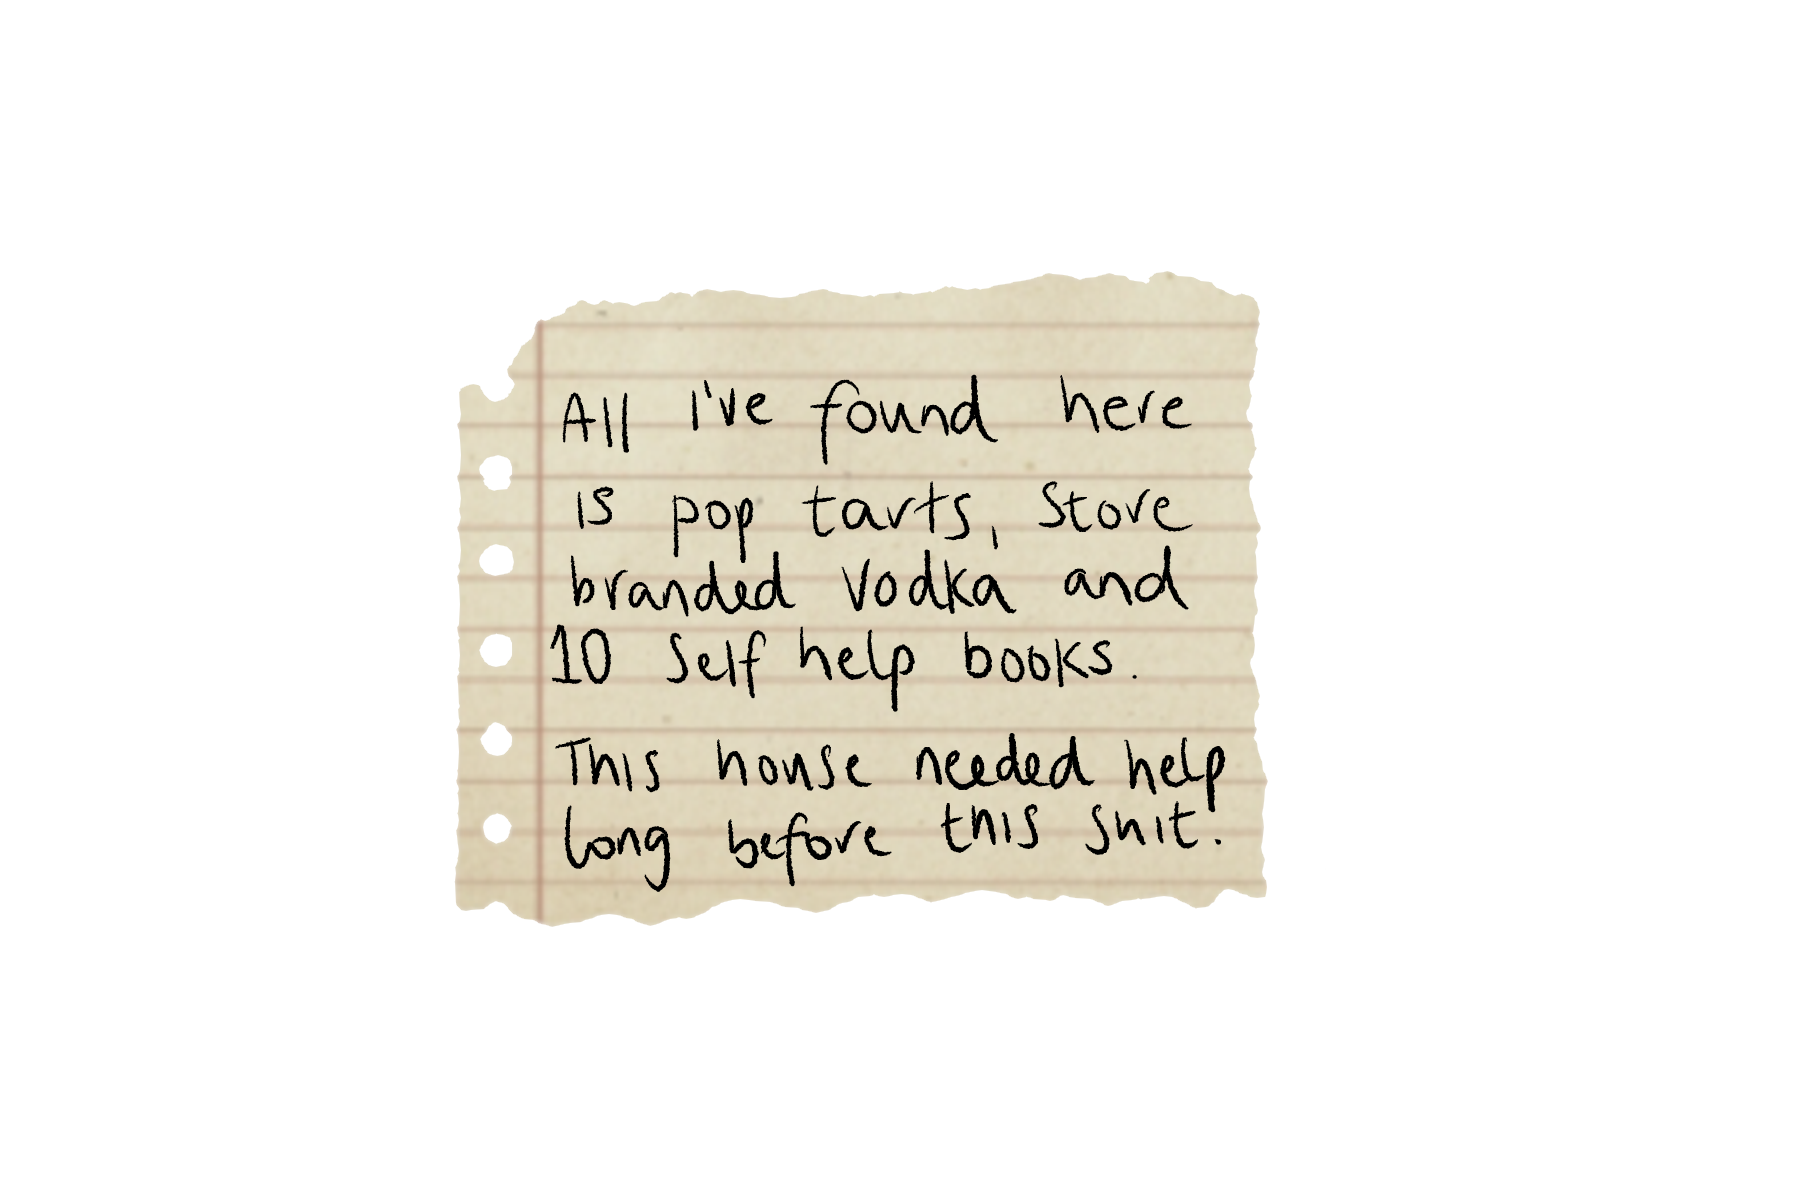 All I've found here
is pop tarts, store
branded vodka and
10 self help books.
This house needed help
long before this shit.